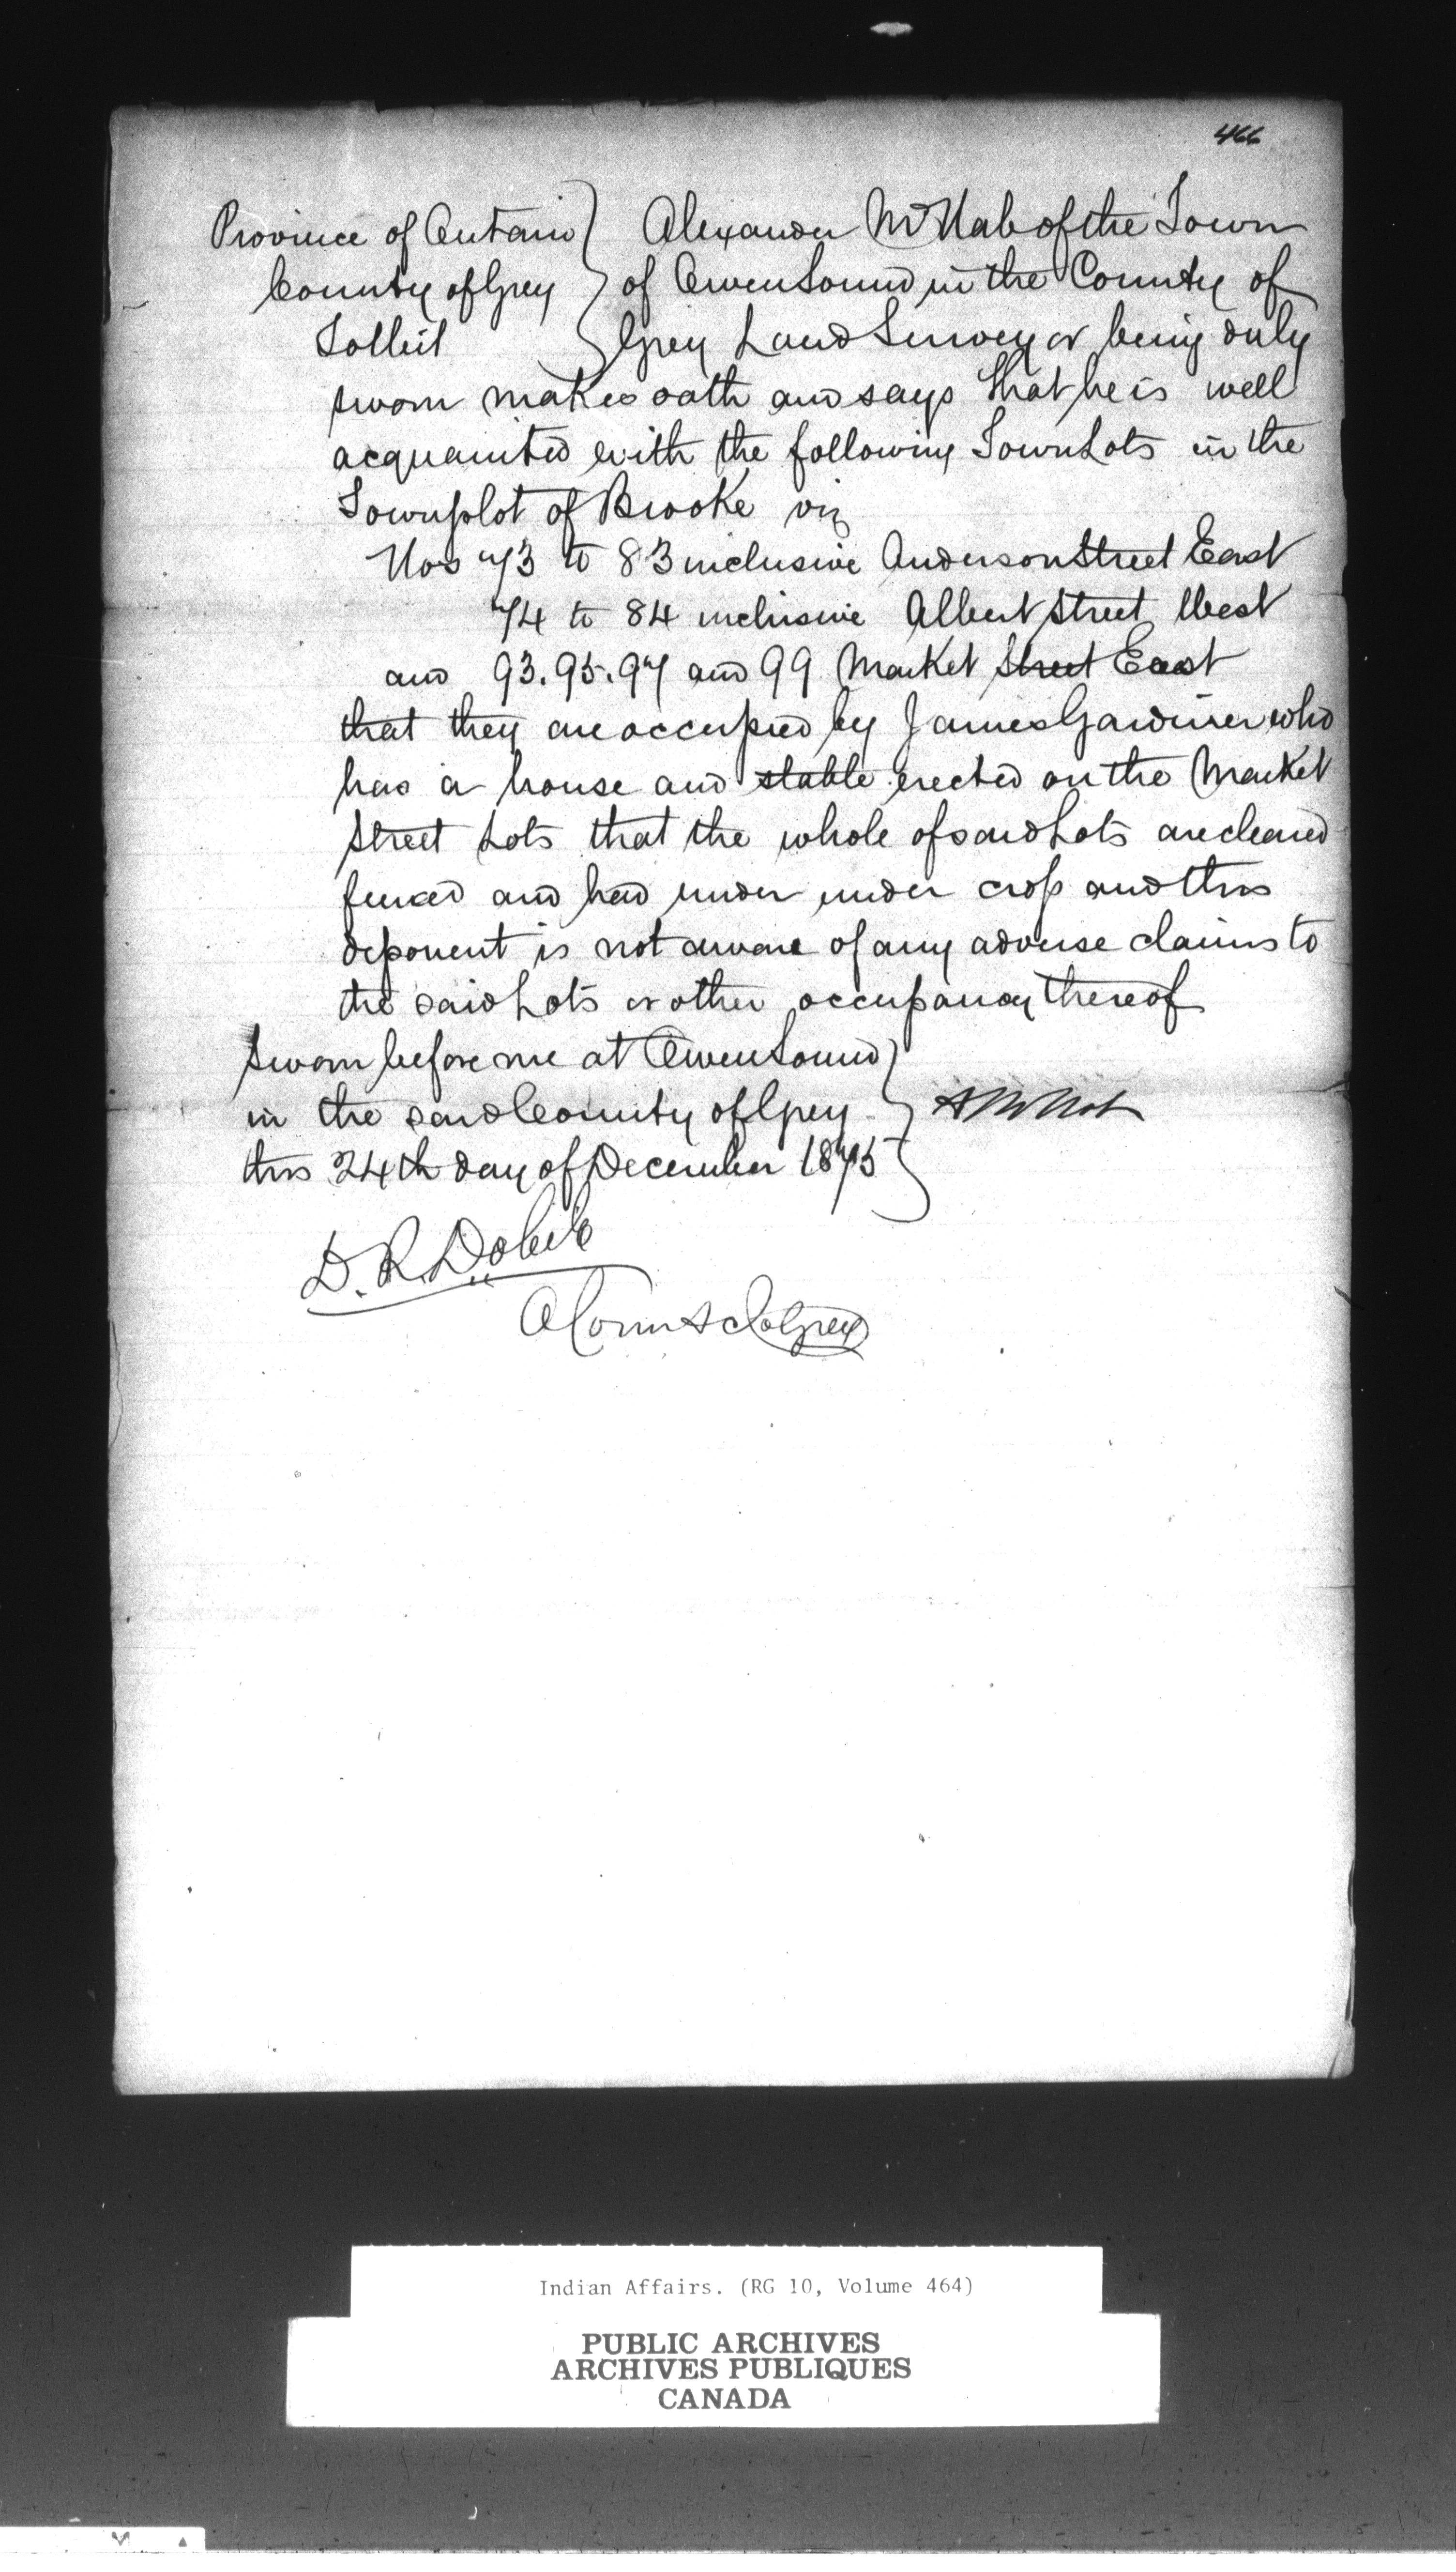 466
Province of Ontario } Alexander McNab of the Town
County of Grey } of Owen Sound in the County of
To Wit } Grey Land Surveyor being duly
sworn makes oath and says that he is well
acquainted with the following Town Lots in the
Townplot of Brooke viz
Nos 73 to 83 inclusive Anderson Street East
74 to 84 inclusive Albert Street West
and 93. 95. 97 and 99 Market Street East
that they are occupied by James Gardiner who
has a house and stable erected on the Market
Street Lots that the whole of said Lots are cleared
fenced and had under under crop and this
deponent is not aware of any adverse claims to
the said Lots or other occupancy thereof
Sworn before me at Owen Sound }
in the said County of Grey } A McNab
this 24th day of December 1875 }
D. R. Dobie
A Comr &c Co Grey
Indian Affairs. (RG 10, Volume 464)
PUBLIC ARCHIVES
ARCHIVES PUBLIQUES
CANADA